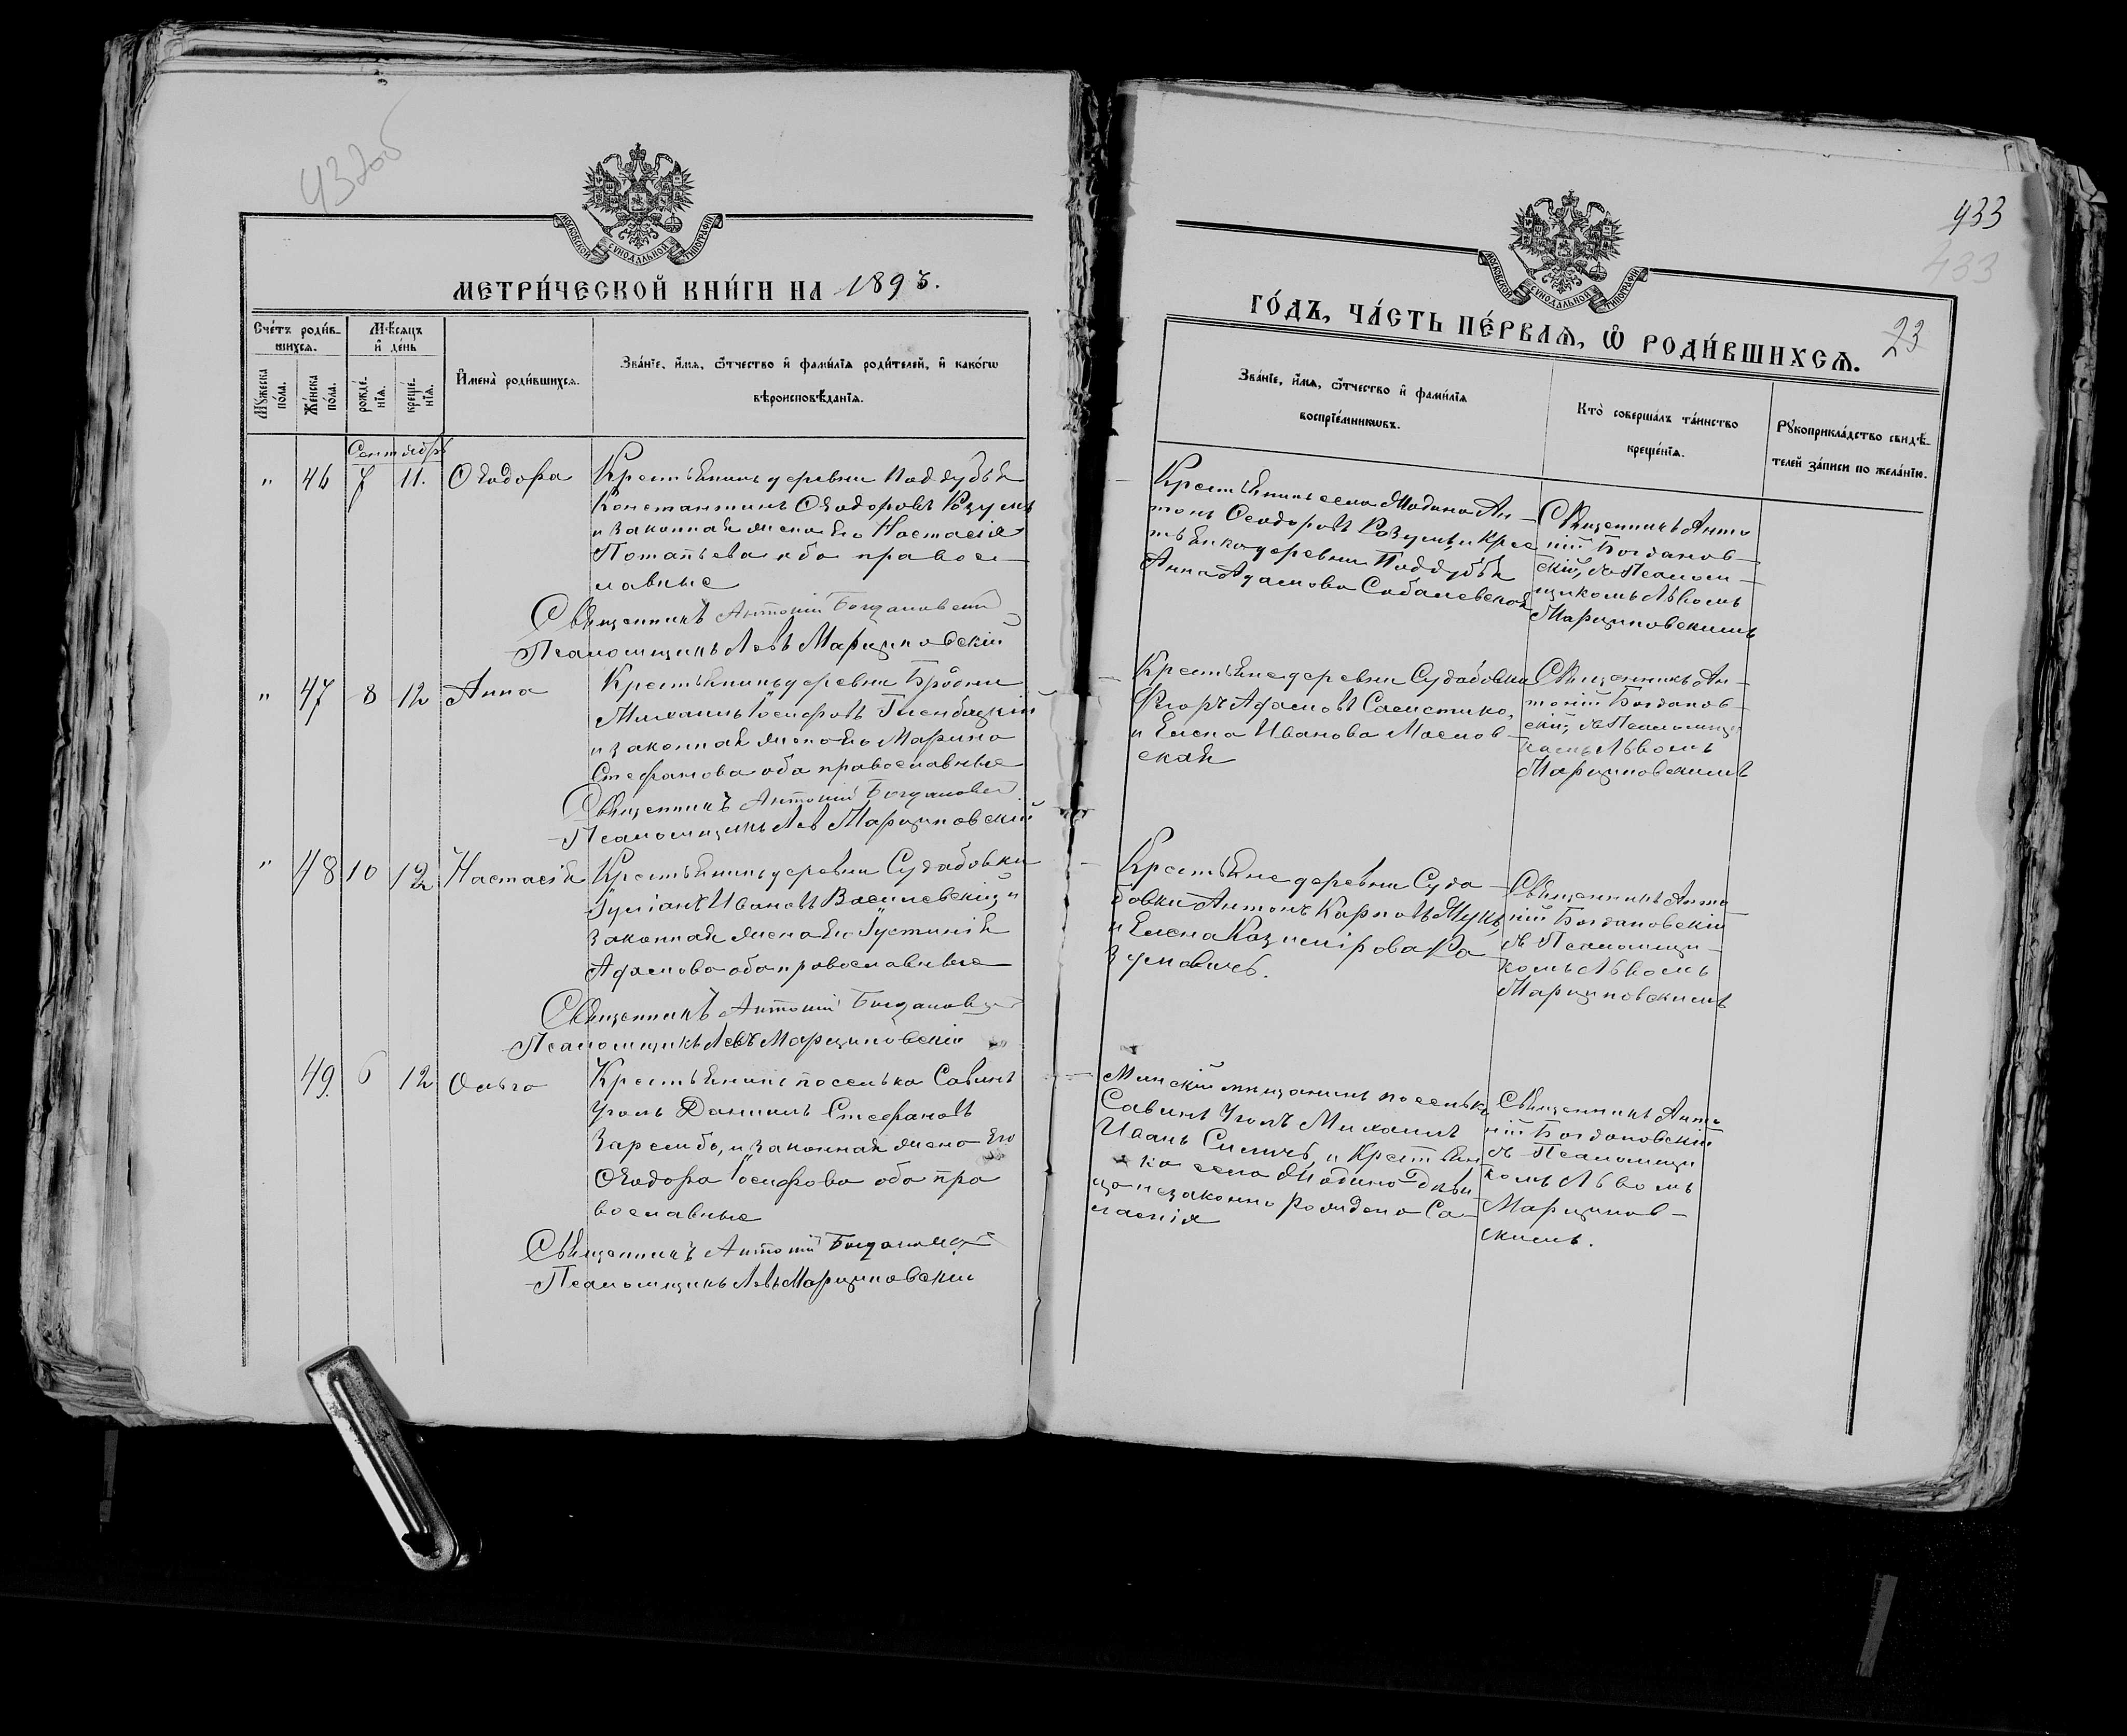 432об
МОСКОВСКОЙ СѴНОДАЛЬНОЙ ТИПОГРАФІИ
МЕТРИ́ЧЕСКОЙ КНИ́ГИ НА 1893.
Сче́тъ роди́вшихсѧ.
Мѣ́сяцъ и҆ де́нь
Мꙋ́жеска по́ла.
Же́нска по́ла.
рожде́нїѧ.
креще́нїѧ.
И҆мена̀ роди́вшихсѧ.
Зва́нїе, и҆́мѧ, ѻ҆́тчество и҆ фами́лїѧ роди́телей, и҆ како́гѡ
вѣроисповѣ́данїѧ.
Сентябрь
" 46 7 11. Ѳеодора
Крестьянинъ деревни Поддубья
Константинъ Ѳеодоровъ Розумъ
и законная жена его Настасія
Потапьева оба правос-
лавные
Священникъ Антоній Богдановскій
Псаломщикъ Левъ Марциновскій
" 47 8 12 Анна
Крестьянинъ деревни Бродни
Михаилъ Іосифовъ
и законная жена его Марина
Стефанова оба православные
Священникъ Антоній Богдановскій
Псаломщикъ Левъ Марциновскій
" 48 10 12 Настасія
Крестьянинъ деревни Судабовки
Іуліанъ Ивановъ Василевскій и
законная жена его Іустинія
Адамова оба православные
Священникъ Антоній Богдановскій
Псаломщикъ Левъ Марциновскій
49. 6 12 Ольга
Крестьянинъ поселька Савинъ
Уголъ Даніилъ Стефановъ
Зарембо, и законная жена его
Ѳеодора Іосифова оба пра
вославные
Священникъ Антоній Богдановскій
Псаломщикъ Левъ Марциновскій
433
433
23
МОСКОВСКОЙ СѴНОДАЛЬНОЙ ТИПОГРАФІИ
ГО́ДЪ, ЧА́СТЬ ПЕ́РВАѦ, Ѡ҆ РОДИ́ВШИХСѦ.
Зва́нїе, и҆́мѧ, ѻ҆́тчество и҆ фами́лїѧ
воспрїе́мникѡвъ.
Кто̀ соверша́лъ та́инство
креще́нїѧ.
Рꙋкоприкла́дство свидѣ́-
телей за́писи по жела́нїю.
Крестьянинъ села Жодина Ан-
тонъ Ѳеодоровъ Розумъ, и крес
тьянка деревни Поддубья
Анна Адамова Соболевская
Священникъ Анто
ній Богданов-
скій, съ Псалом-
щикомъ Львомъ
Марциновскимъ
Крестьяне деревни Судабовки
Адамовъ
и Елена Иванова Маслов-
ская
Священникъ Ан-
тоній Богданов-
скій, съ Псаломщи
комъ Львомъ
Марциновскимъ
Крестьяне деревни Суда-
бовки Антонъ Карповъ Жукъ,
и Елена Казимірова Ра-
зумовичъ.
Священникъ Анто
ній Богдановскій
съ Псаломщи-
комъ Львомъ
Марциновскимъ
Минскій мѣщанинъ поселька
Савинъ Уголъ Михаилъ
Иванъ и Крестьян
ка села Жодина Дѣви-
ца незаконно рождена
Священникъ Анто
ній Богдановскій
съ Псаломщи
комъ Львомъ
Марцинов-
скимъ.